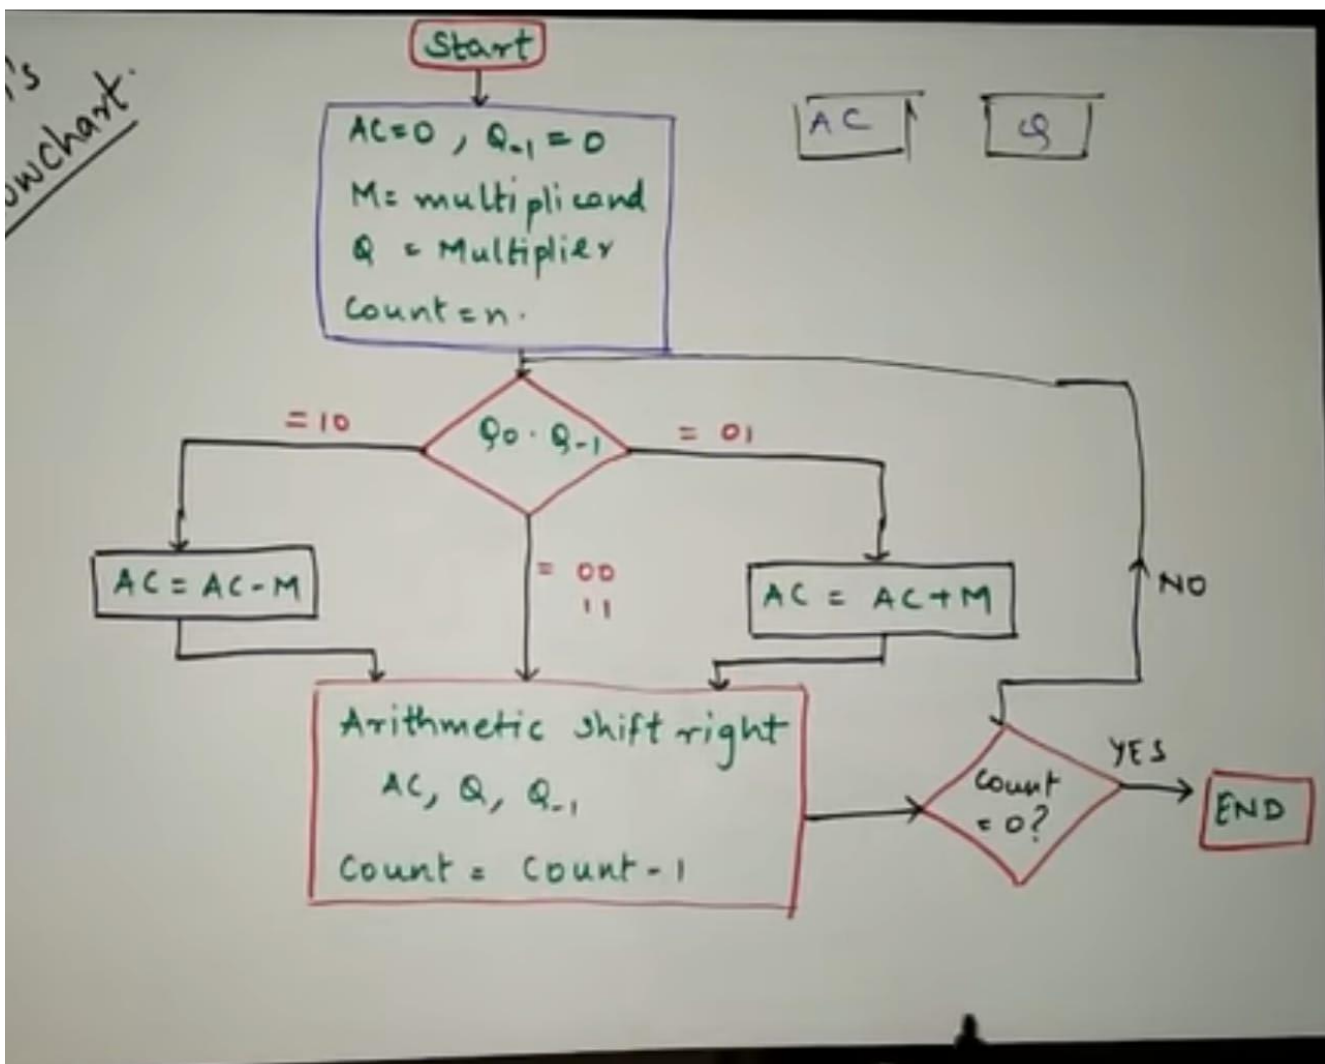 Start
AC=0, Q-1 = 0
M= multiplicand
Q = Multiplier
Count=n.
AC
Q
Q0 . Q-1
= 10
= 01
= 00
11
AC = AC-M
AC = AC+M
NO
Arithmetic shift right
AC, Q, Q-1
Count = Count-1
Count
= 0?
YES
END